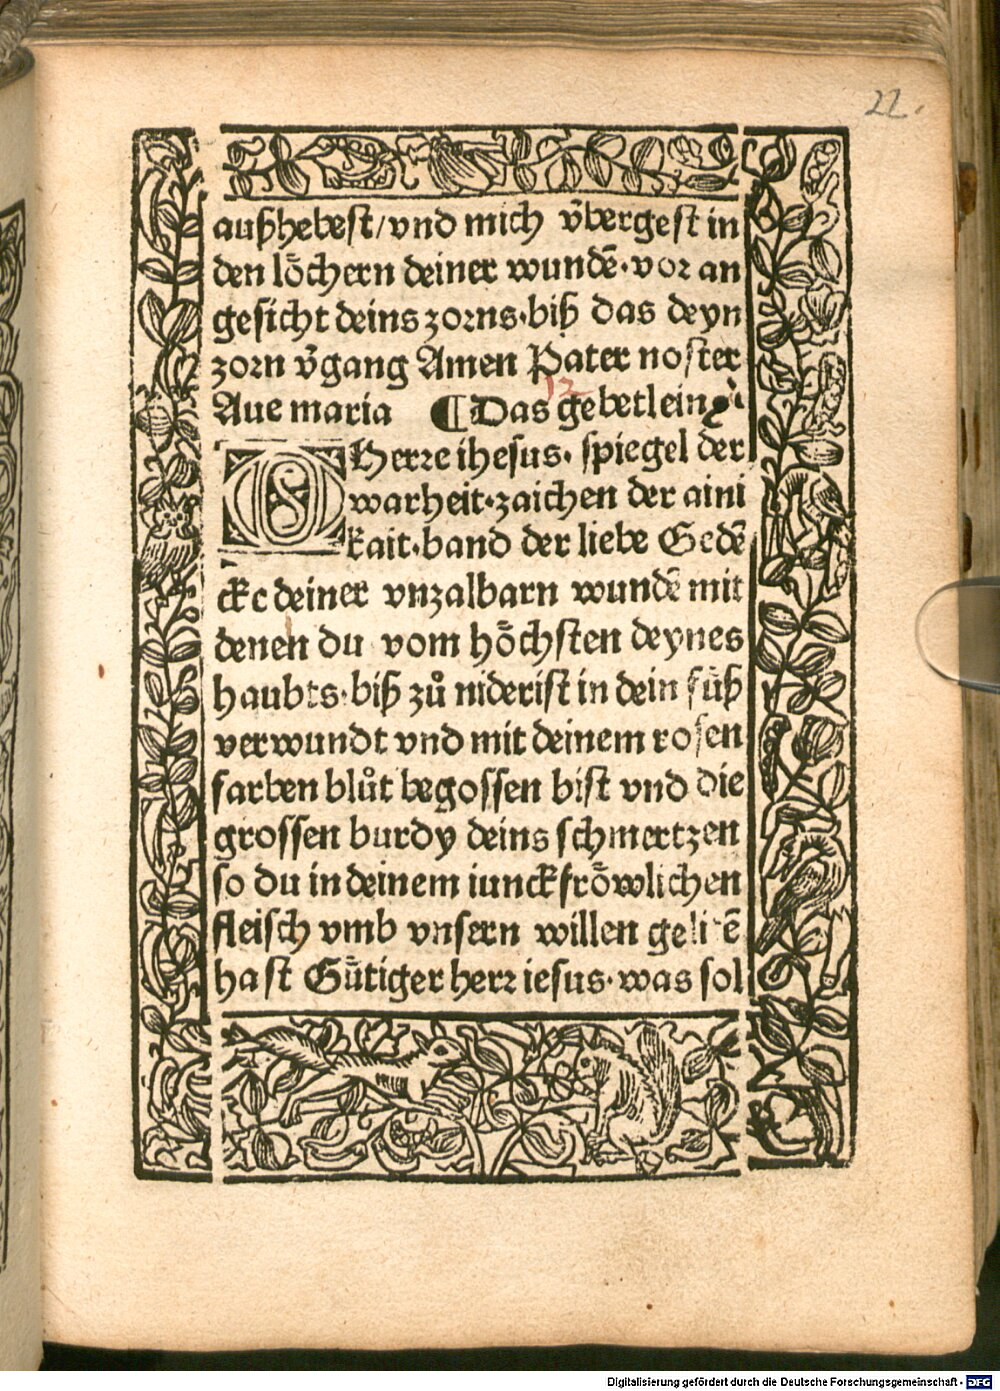 22.
außhebest/vnd mich v̈bergest in
den lo̊chern deiner wundē·vor an
gesicht deins zorns·biß das deyn
zorn v̈gang Amen Pater noster
Aue maria ¶Das gebetlein
12
O Herre ihesus· spiegel der
warheit·zaichen der aini
kait·band der liebe Gedē
cke deiner vnzalbarn wundē mit
denen du vom ho̊chsten deynes
haubts·biß zů niderist in dein füß
verwundt vnd mit deinem rosen
farben blůt begossen bist vnd die
grossen burdy deins schmertzen
so du in deinem iunckfro̊wlichen
fleisch vmb vnsern willen gelitē
hast Gütiger herr iesus·was sol
Digitalisierung gefördert durch die Deutsche Forschungsgemeinschaft - DFG